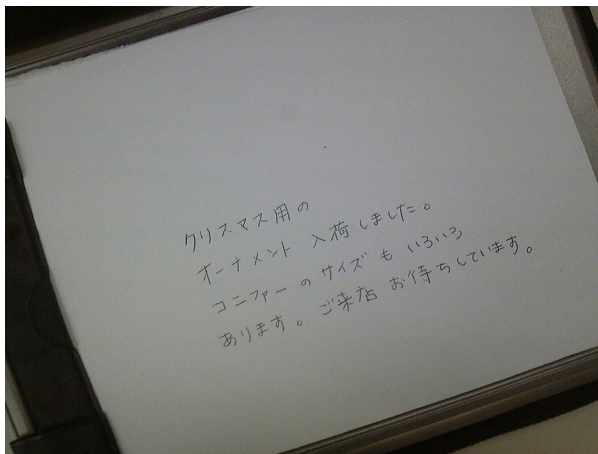 クリスマス用の
オーナメント 入荷しました。
コニファーのサイズも いろいろ
あります。ご来店 お待ちしています。